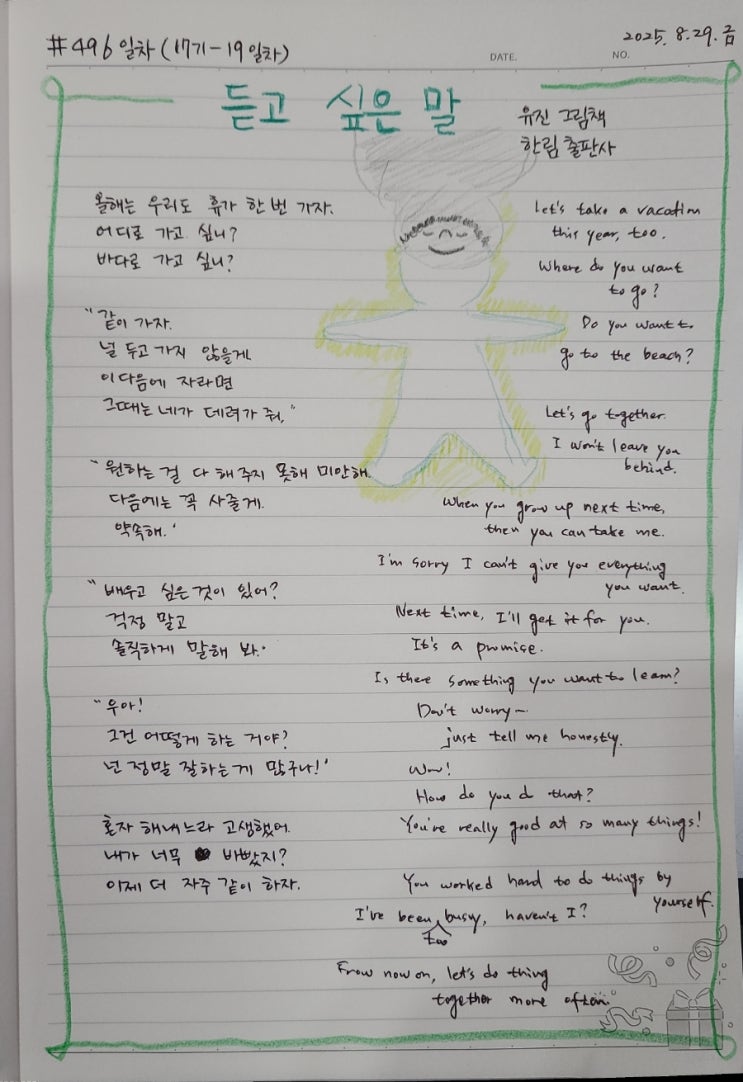 #496일차(17기-19일차)
2025. 8. 29. 금
DATE.
NO.
듣고 싶은 말
유진 그림책
한림 출판사
올해는 우리도 휴가 한 번 가자.
어디로 가고 싶니?
바다로 가고 싶니?
"같이 가자.
널 두고 가지 않을게.
이 다음에 자라면
그때는 네가 데려가 줘."
"원하는 걸 다 해 주지 못해 미안해.
다음에는 꼭 사줄게.
약속해.'
"배우고 싶은 것이 있어?
걱정 말고
솔직하게 말해 봐.'
"우아!
그건 어떻게 하는 거야?
넌 정말 잘하는 게 많구나!'
혼자 해내느라 고생했어.
내가 너무 바빴지?
이제 더 자주 같이 하자.
Let's take a vacation
this year, too.
Where do you want
to go?
Do you want to
go to the beach?
Let's go together.
I won't leave you
behind.
When you grow up next time,
then you can take me.
I'm sorry I can't give you everything
you want.
Next time, I'll get it for you.
It's a promise.
Is there something you want to learn?
Don't worry—
just tell me honestly.
Wow!
How do you do that?
You're really good at so many things!
You worked hard to do things by
yourself.
I've been too busy, haven't I?
From now on, let's do thing
together more often.